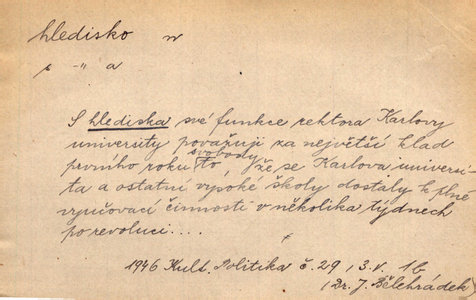 hledisko n
s -"- a
S hlediska své funkce rektora Karlovy
university považuji za největší klad
prvního roku svobody to, že se Karlova universi-
ta a ostatní vysoké školy dostaly k plné
vyučovací činnosti v několika týdnech
po revoluci....
1946 Kult. Politika č. 29, 3.V. 1b
(Dr. J. Bělehrádek)